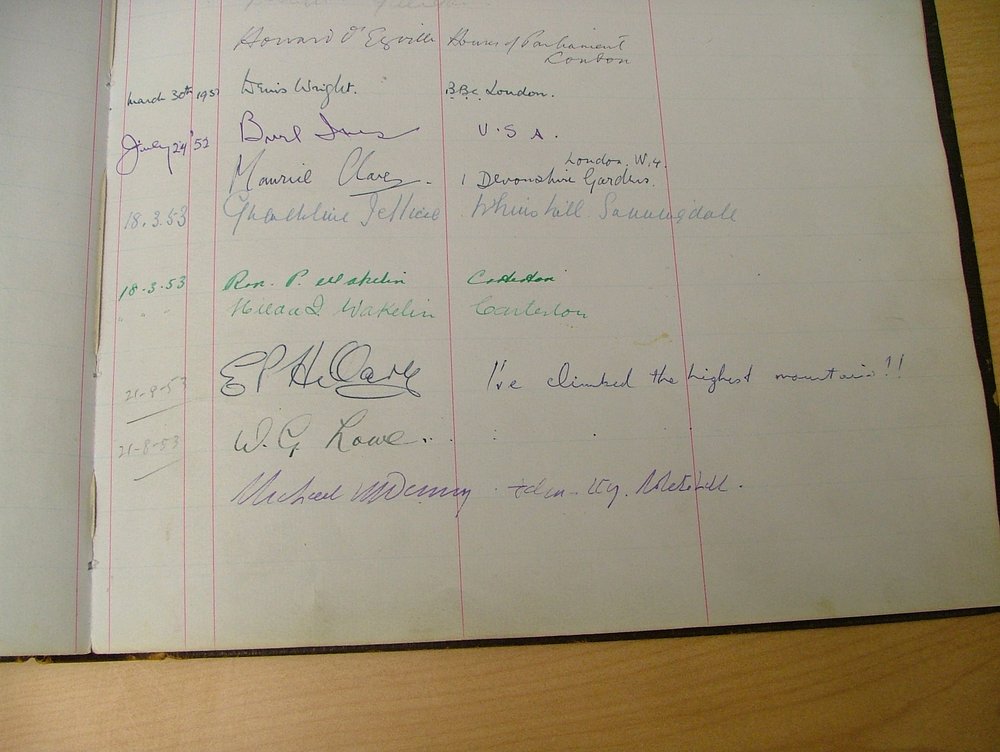 Howard d'Egville Houses of Parliament
London
March 30th 1952 Denis Wright. B.B.C. London.
July 24 '52 Burl Ives U.S.A.
London. W.4.
Maurice Clare. 1 Devonshire Gardens.
18.3.53 Geraldine Jellicoe Sunningdale
18.3.53 Ron. P. Wakelin Carterton
" " " Hilda I. Wakelin Carterton
21-8-53 I've climbed the highest mountain!!
21-8-53 W. G. Lowe..
Michael